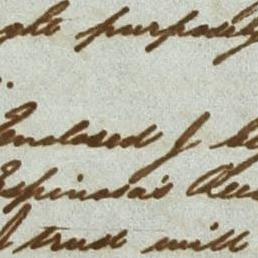 purposely
Enclosed I
Espinosa's
I trust will